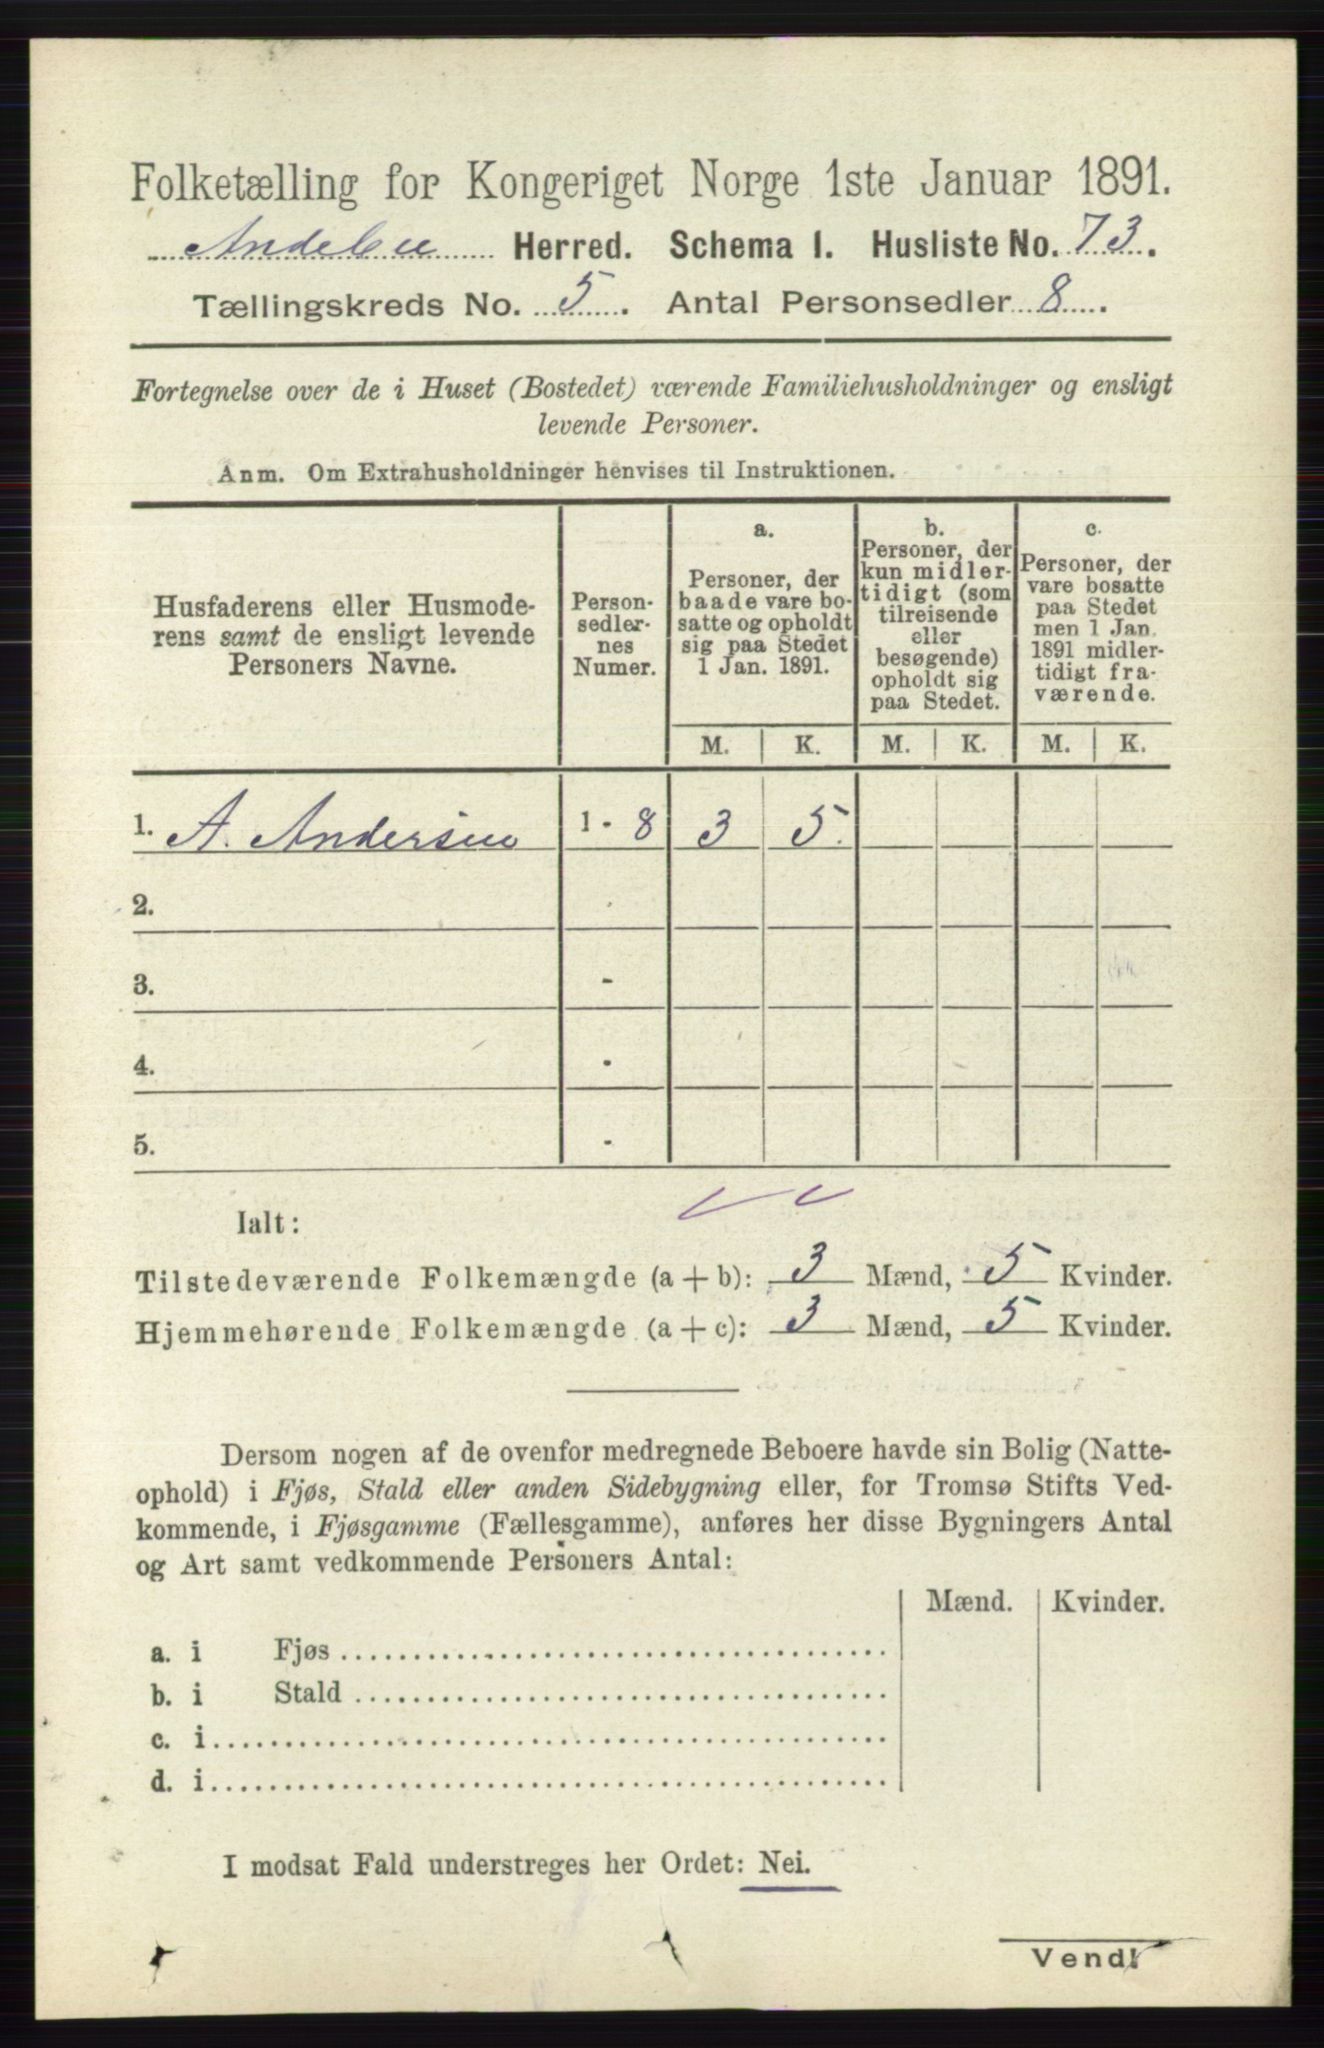 Folketælling for Kongeriget Norge 1ste Januar 1891.
Andebu Herred. Schema I. Husliste No. 73.
Tællingskreds No. 5. Antal Personsedler 8.
Fortegnelse over de i Huset (Bostedet) værende Familiehusholdninger og ensligt
levende Personer.
Anm. Om Extrahusholdninger henvises til Instruktionen.
Husfaderens eller Husmode-
rens samt de ensligt levende
Personers Navne.
Person-
sedler-
nes
Numer.
a.
Personer, der
baade vare bo-
satte og opholdt
sig paa Stedet
1 Jan. 1891.
b.
Personer, der
kun midler-
tidigt (som
tilreisende
eller
besøgende)
opholdt sig
paa Stedet.
c.
Personer, der
vare bosatte
paa Stedet
men 1 Jan.
1891 midler-
tidigt fra-
værende.
M. K. M. K. M. K.
1. A. Andersen 1 - 8 3 5.
2.
3. -
4. -
5. -
Ialt:
Tilstedeværende Folkemængde (a + b): 3 Mænd, 5 Kvinder.
Hjemmehørende Folkemængde (a + c): 3 Mænd, 5 Kvinder.
Dersom nogen af de ovenfor medregnede Beboere havde sin Bolig (Natte-
ophold) i Fjøs, Stald eller anden Sidebygning eller, for Tromsø Stifts Ved-
kommende, i Fjøsgamme (Fællesgamme), anføres her disse Bygningers Antal
og Art samt vedkommende Personers Antal:
Mænd. Kvinder.
a. i Fjøs
b. i Stald
c. i
d. i
I modsat Fald understreges her Ordet: Nei.
Vend!